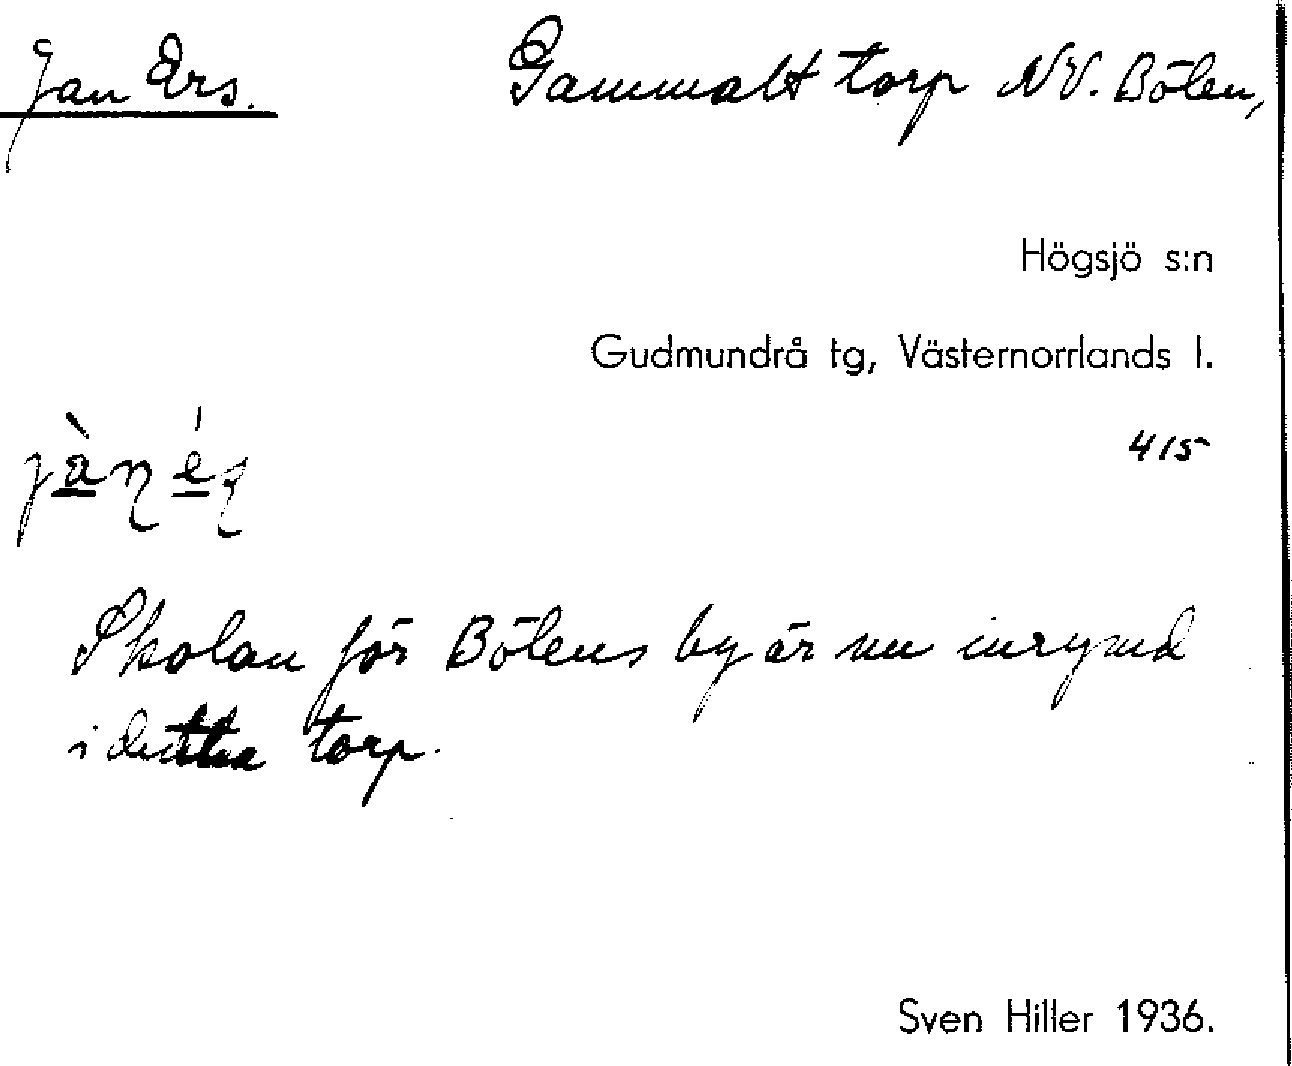 Jan Ers. Gammalt torp NV. Bölen,
Högsjö s:n
Gudmundrå tg, Västernorrlands l.
415
Skolan för Bölens by är nu inrymd
i detta torp.
Sven Hiller 1936.